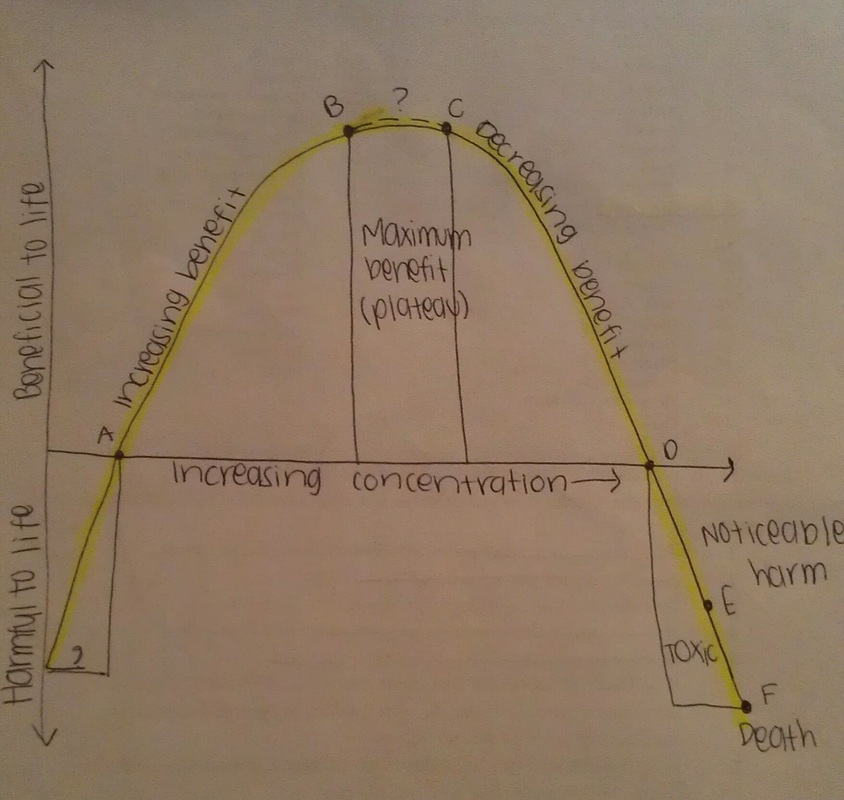 B
?
C
Increasing benefit
Decreasing benefit
Beneficial to life
Maximum
benefit
(plateau)
A
D
Increasing concentration
Harmful to life
Noticeable
harm
E
?
Toxic
F
Death